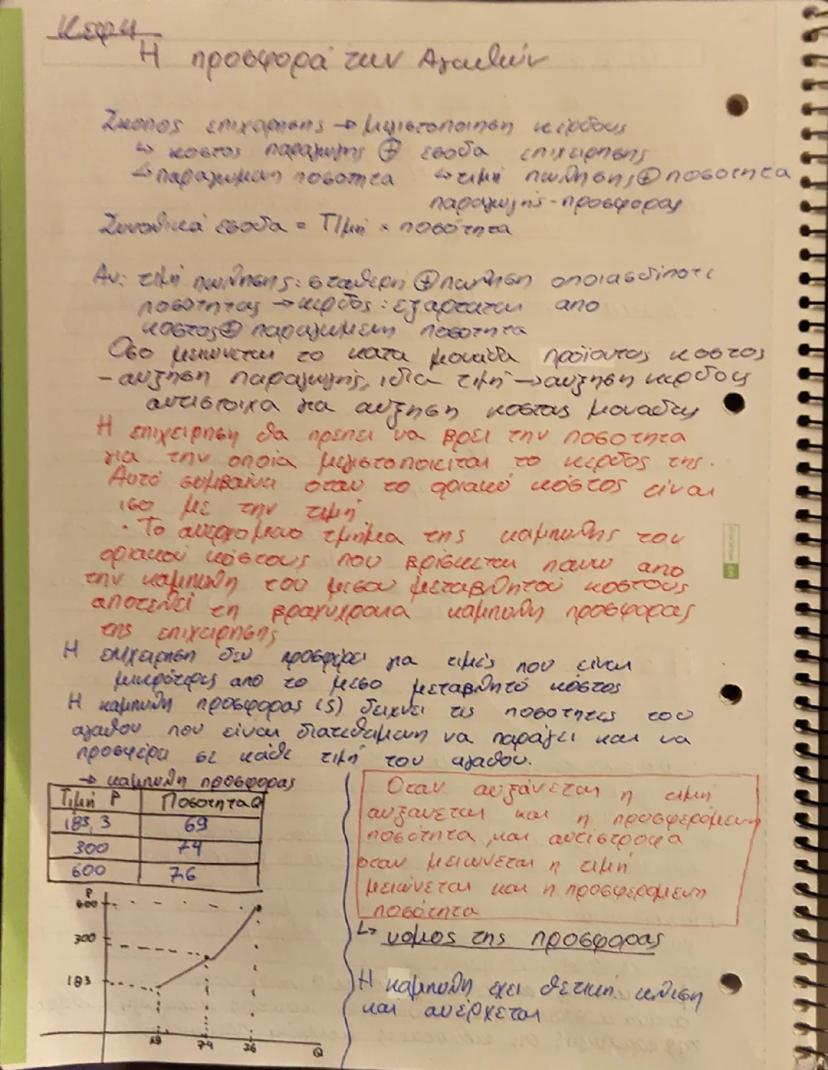 Κεφ4
Η προσφορά των Αγαθών
Σκοπος επιχειρησης → μεγιστοποιηση κερδους
↳ κοστος παραγωγης ⊕ εσοδα επιχειρησης
↳ παραγωμενη ποσοτητα ↳ τιμή πωλησης ⊕ ποσοτητα
παραγωγής - προσφορας
Συνολικά εσοδα = Τιμή × ποσότητα
Αν: τιμή πωλησης: σταθερη ⊕ πωληση οποιασδιποτε
ποσοτητας → κερδος: εξαρταται απο
κοστος ⊕ παραγωμενη ποσοτητα
Οσο μειωνεται το κατα μοναδα προϊοντος κοστος
- αυξηση παραγωγης, ιδια τιμή → αυξηση κερδους
αντιστοιχα για αυξηση κοστος μοναδας
Η επιχειρηση θα πρεπει να βρει την ποσοτητα
για την οποια μεγιστοποιειται το κερδος της.
Αυτό συμβαινει οταν το οριακό κόστος είναι
ισο με την τιμή
· Το ανερχομενο τμήμα της καμπυλης του
οριακού κόστους που βρίσκεται πανω απο
την καμπυλη του μεσου μεταβλητού κοστους
αποτελεί τη βραχυχρονια καμπυλη προσφορας
της επιχειρησης
Η επιχειρηση δεν προσφερει για τιμές που είναι
μικρότερες απο το μεσο μεταβλητό κόστος
Η καμπυλη προσφορας (s) δειχνει τις ποσοτητες του
αγαθου που είναι διατεθημενη να παράγει και να
προσφερει σε κάθε τιμή του αγαθου.
→ καμπυλη προσφορας
Τιμή P Ποσοτητα Q
183,3 69
300 74
600 76
P
600
300
183
69 74 76 Q
Οταν αυξάνεται η τιμη
αυξανεται και η προσφερόμενη
ποσότητα και αντιστροφα
οταν μειωνεται η τιμή
μειώνεται και η προσφερομενη
ποσότητα
↳ νομος της προσφορας
Η καμπυλη εχει θετικη κλιση
και ανέρχεται